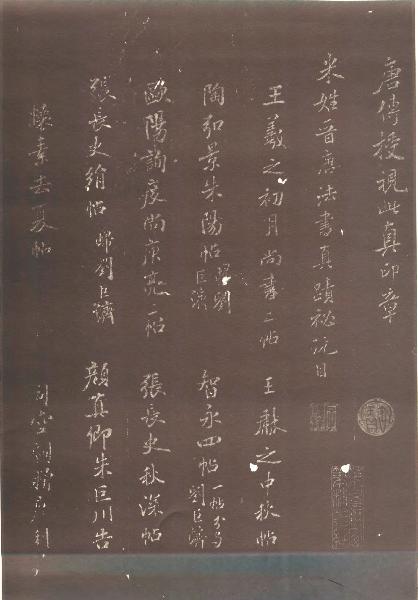 唐傅授視此真印章
米姓晉唐法書真蹟祕玩目
王羲之初月尚書二帖 王獻之中秋帖
陶弘景朱陽帖 歸劉巨濟 智永四帖 一帖分与劉巨濟
歐陽詢度尚庾亮二帖 張長史秋深帖
張長史絹帖 歸劉巨濟 顏真卿朱巨川告
懷素去夏帖